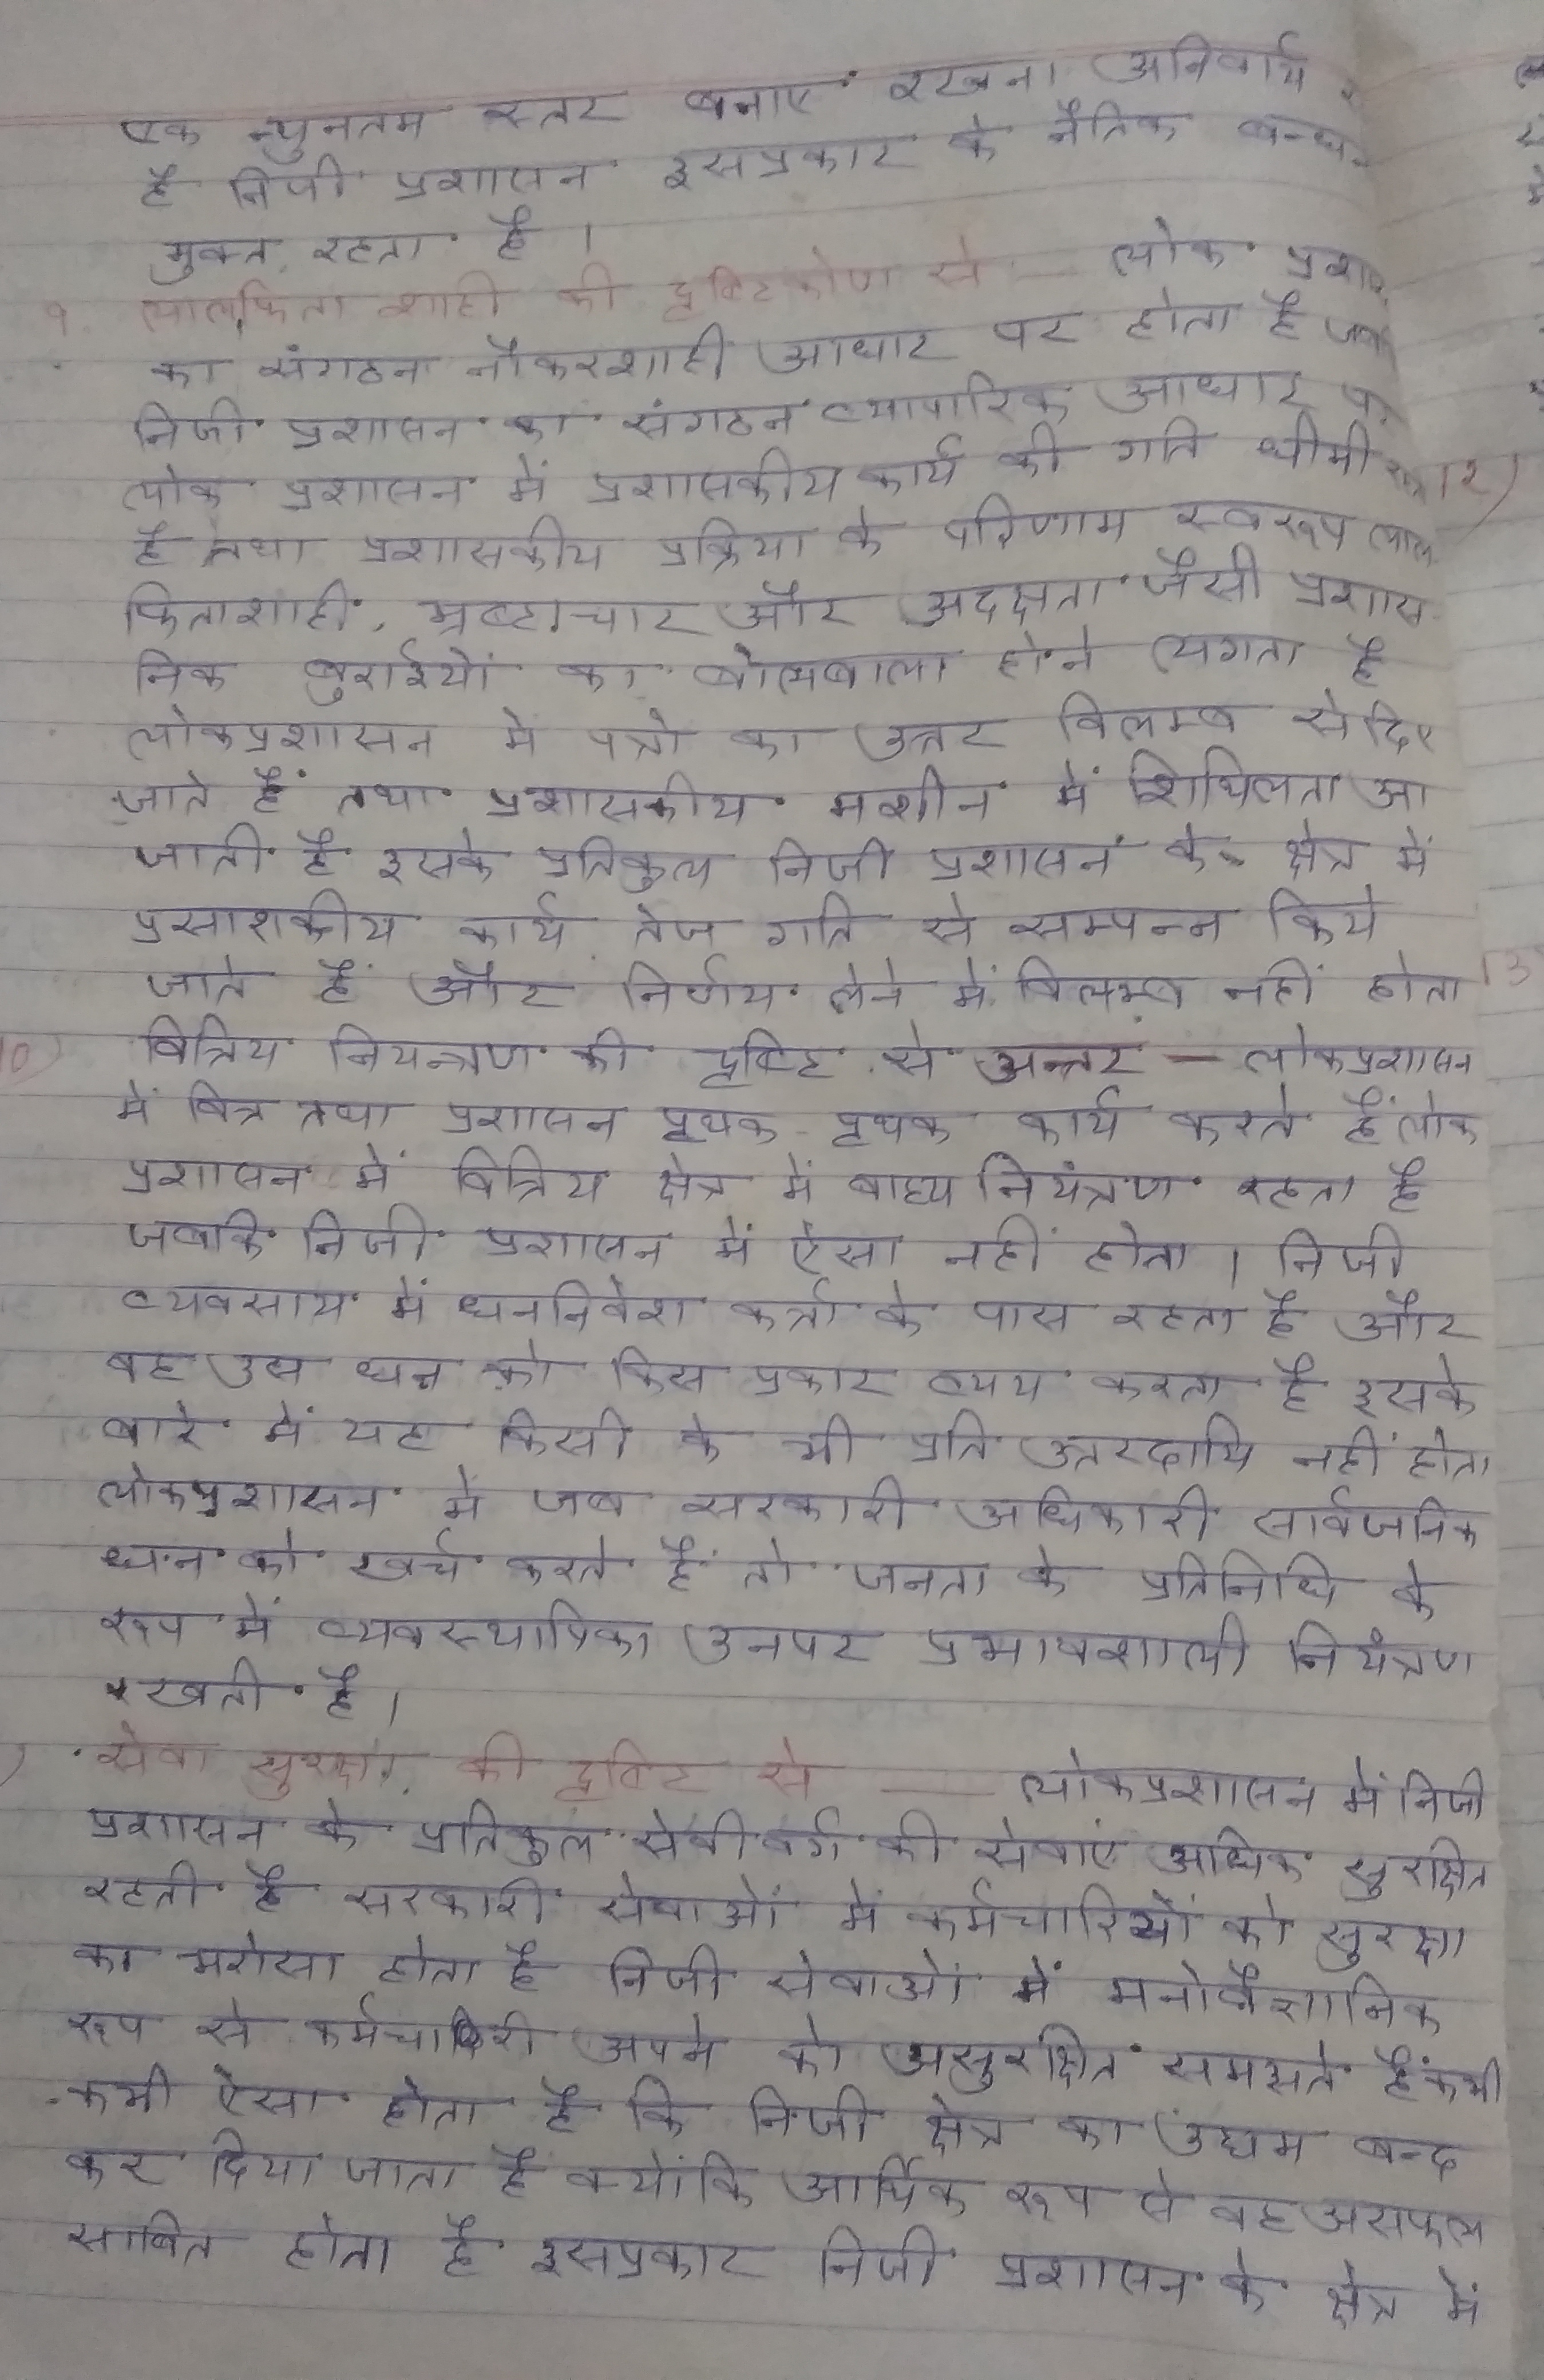 एक न्युनतम स्तर बनाए रखना अनिवार्य
है निजी प्रशासन इसप्रकार के नैतिक बन्धन
मुक्त रहता है ।
९. लालफिता शाही की दृष्टिकोण से — लोक प्रशा
का संगठन नौकरशाही आधार पर होता है जब
निजी प्रशासन का संगठन व्यापारिक आधार प
लोक प्रशासन में प्रशासकीय कार्य की गति धीमी
है तथा प्रशासकीय प्रक्रिया के परिणाम स्वरूप लाल
फिताशाही, भ्रष्टाचार और अदक्षता जैसी प्रशास
निक बुराईयों का बोलबाला होने लगता है
लोकप्रशासन मे पत्रो का उत्तर विलम्ब से दिए
जाते हैं तथा प्रशासकीय मशीन में शिथिलता आ
जाती है इसके प्रतिकुल निजी प्रशासन के क्षेत्र में
प्रसाशकीय कार्य तेज गति से सम्पन्न किये
जाते हैं और निर्णय लेने में विलम्ब नहीं होता
10) वित्तिय नियन्त्रण की दृष्टि से अन्तर — लोकप्रशासन
में वित्त तथा प्रशासन पृथक पृथक कार्य करते हैं लोक
प्रशासन में वित्तिय क्षेत्र में बाह्य नियंत्रण रहता है
जबकि निजी प्रशासन में ऐसा नहीं होता । निजी
व्यवसाय में धननिवेश कर्त्ता के पास रहता है और
वह उस धन को किस प्रकार व्यय करता है इसके
बारे में यह किसी के भी प्रति उत्तरदायि नहीं होता
लोकप्रशासन में जब सरकारी अधिकारी सार्वजनिक
धन को खर्च करते हैं तो जनता के प्रतिनिधि के
रूप में व्यवस्थापिका उनपर प्रभावशाली नियंत्रण
रखती है ।
) सेवा सुरक्षा की दृष्टि से — लोकप्रशासन में निजी
प्रशासन के प्रतिकुल सेवीवर्ग की सेवाएं अधिक सुरक्षित
रहती है सरकारी सेवाओं में कर्मचारियों को सुरक्षा
का भरोसा होता है निजी सेवाओं में मनोवैज्ञानिक
रूप से कर्मचारी अपने को असुरक्षित समझते हैं कभी
कभी ऐसा होता है कि निजी क्षेत्र का उद्यम बन्द
कर दिया जाता है क्योंकि आर्थिक रूप से वह असफल
साबित होता है इसप्रकार निजी प्रशासन के क्षेत्र में